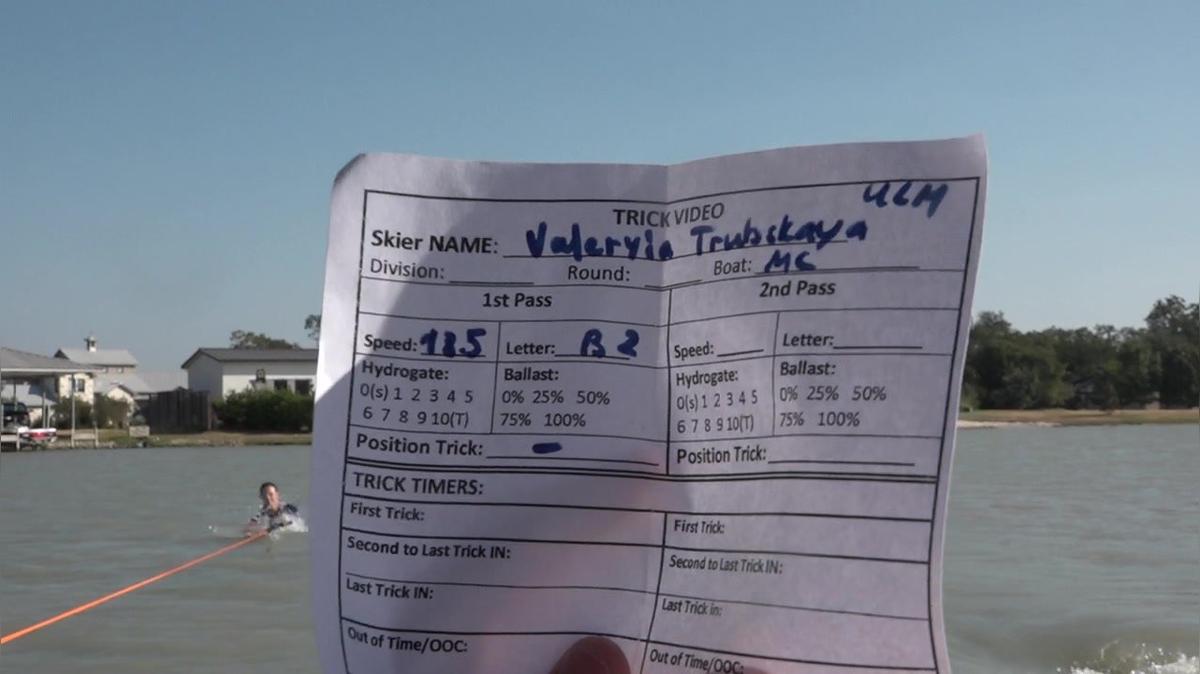 ULM
TRICK VIDEO
Skier NAME: Valeryia Trubskaya
Division: ______ Round: ______ Boat: MC
1st Pass 2nd Pass
Speed: 18.5 Letter: B 2 Speed: ______ Letter: ______
Hydrogate: Ballast: Hydrogate: Ballast:
0(s) 1 2 3 4 5 0% 25% 50% 0(s) 1 2 3 4 5 0% 25% 50%
6 7 8 9 10(T) 75% 100% 6 7 8 9 10(T) 75% 100%
Position Trick: - Position Trick: ______
TRICK TIMERS:
First Trick: First Trick:
Second to Last Trick IN: Second to Last Trick IN:
Last Trick IN: Last Trick in:
Out of Time/OOC: Out of Time/OOC: